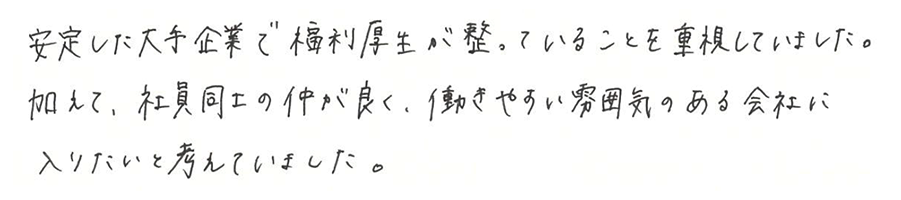 安定した大手企業で福利厚生が整っていることを重視していました。
加えて、社員同士の仲が良く、働きやすい雰囲気のある会社に
入りたいと考えていました。